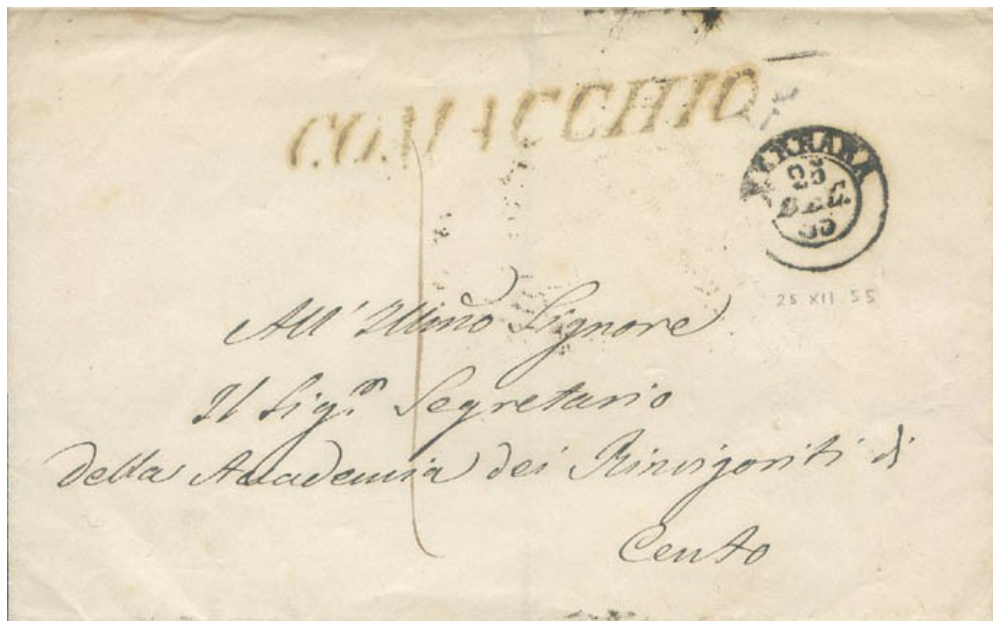 COMACCHIO
FERRARA
25
DEC.
55
25 XII 55
All' Illmo Signore
Il Sigr. Segretario
della Accademia dei Rinvigoriti di
Cento